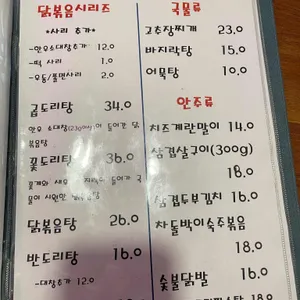 닭볶음시리즈
*사리 추가*
-한우소대창추가 12.0
-떡 사리 2.0
-우동/쫄면사리 2.0
곱도리탕 34.0
한우 소대창(230g)이 들어간 닭
볶음탕
꽃도리탕 36.0
꽃게와 새우 들어가 국
물이 시원한
닭볶음탕 26.0
반도리탕 16.0
-대창추가 12.0
국물류
고추장찌개 23.0
바지락탕 15.0
어묵탕 10.0
안주류
치즈계란말이 14.0
삼겹살구이(300g)
18.0
삼겹두부김치 18.0
차돌박이숙주볶음
18.0
숯불닭발 16.0